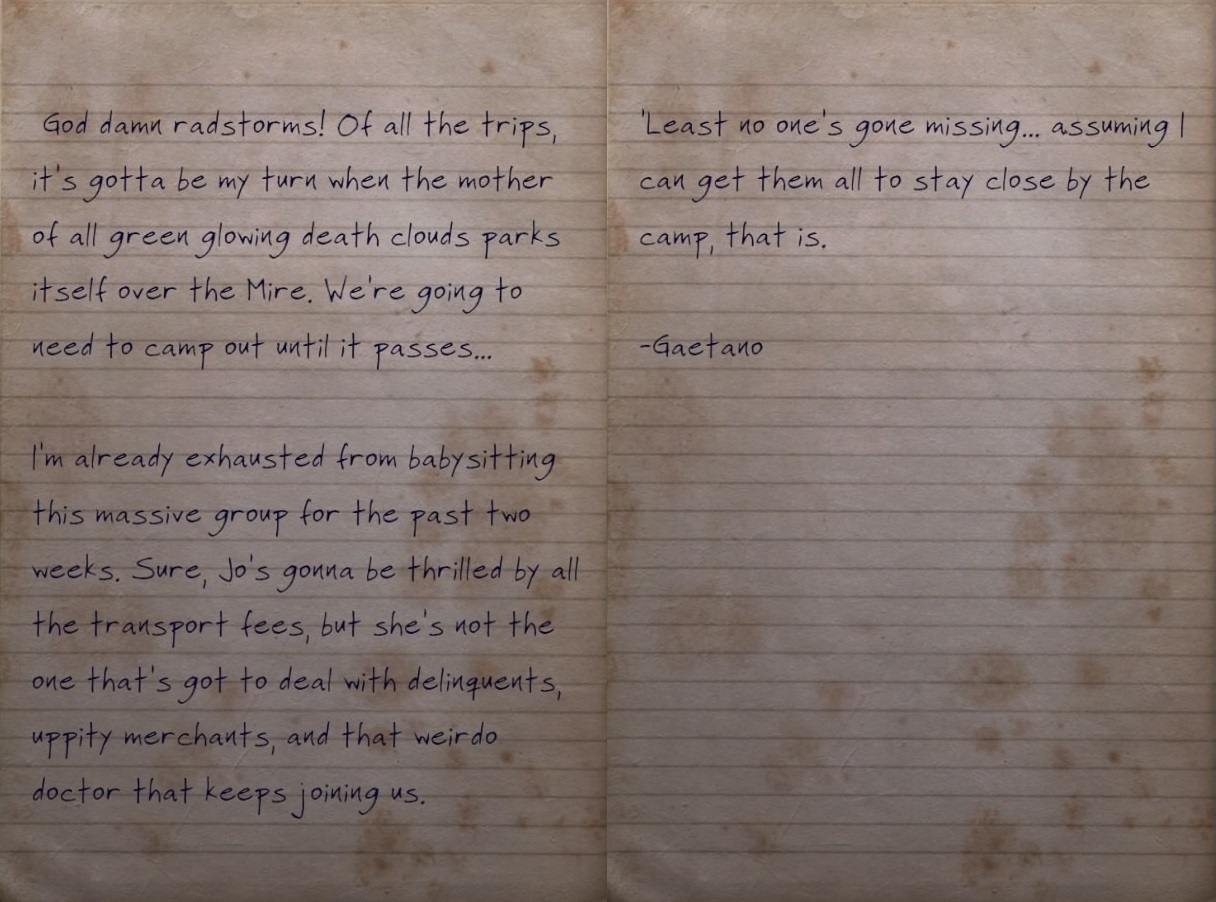 God damn radstorms! Of all the trips,
it's gotta be my turn when the mother
of all green glowing death clouds parks
itself over the Mire. We're going to
need to camp out until it passes...
I'm already exhausted from babysitting
this massive group for the past two
weeks. Sure, Jo's gonna be thrilled by all
the transport fees, but she's not the
one that's got to deal with delinquents,
uppity merchants, and that weirdo
doctor that keeps joining us.
'Least no one's gone missing... assuming I
can get them all to stay close by the
camp, that is.
-Gaetano